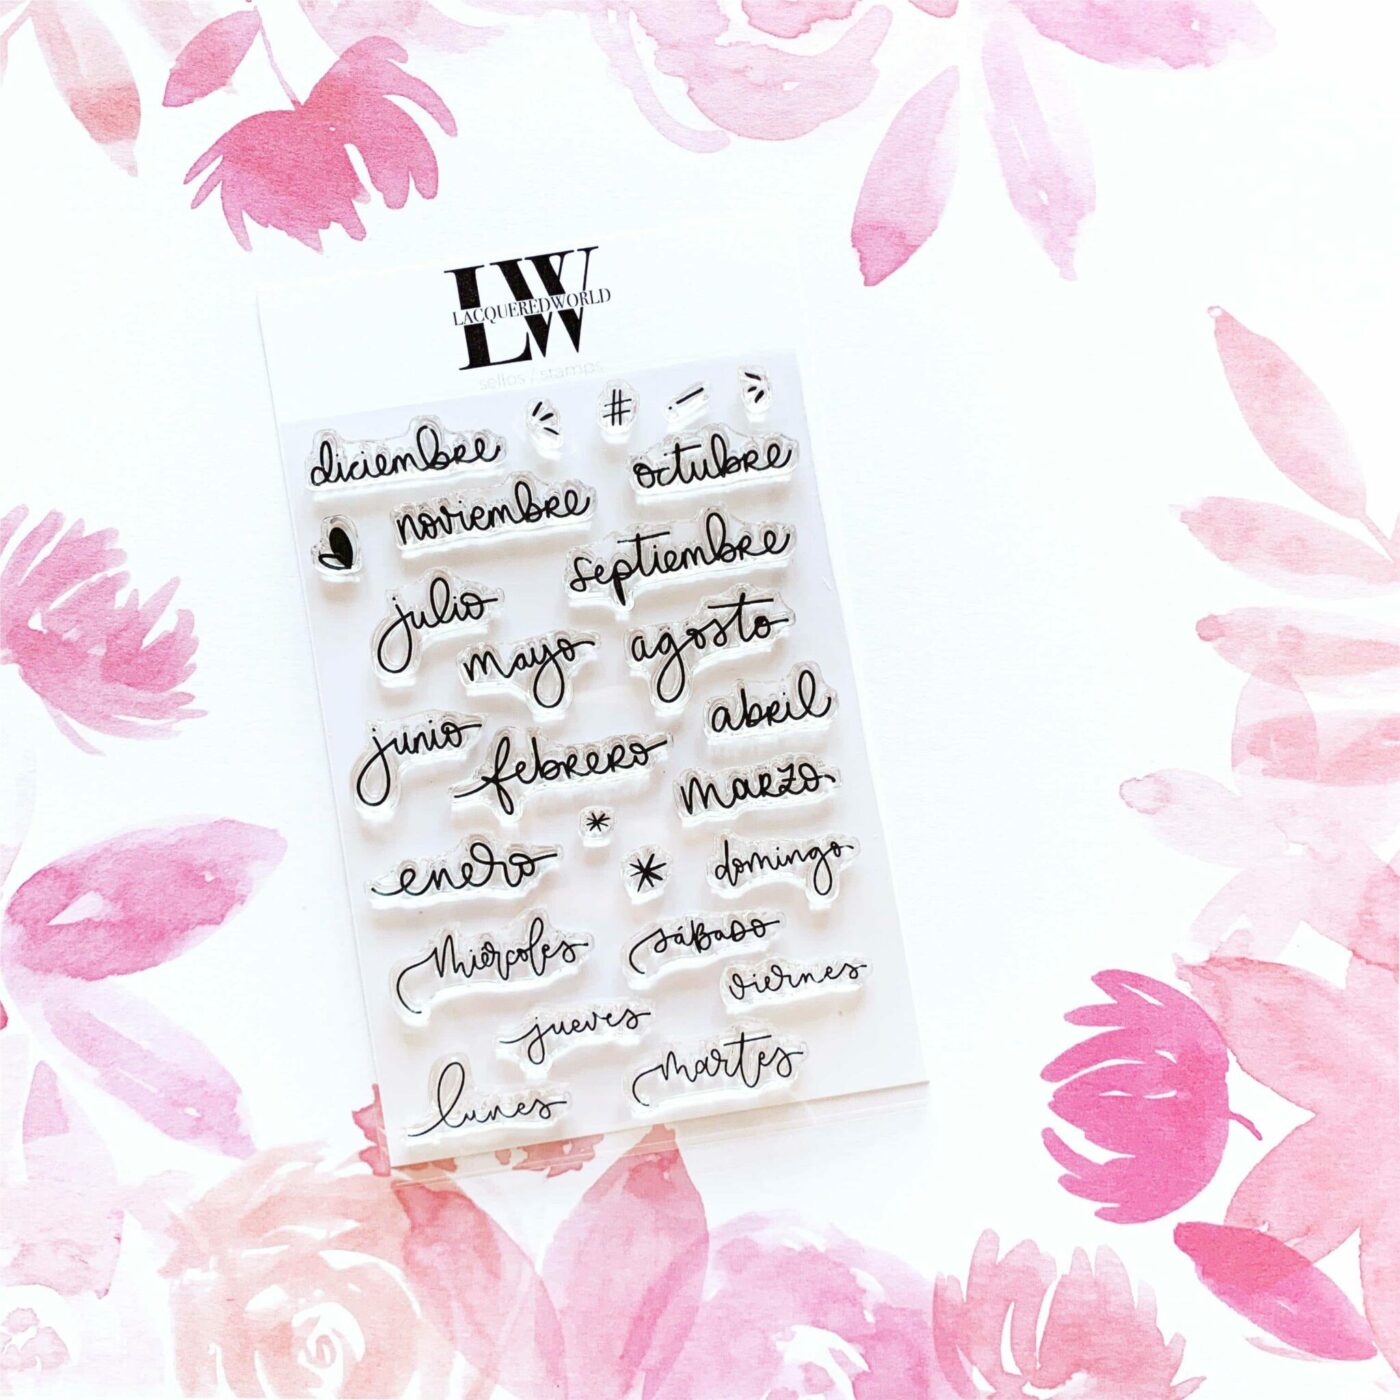 LW
LACQUEREDWORLD
sellos / stamps
#
diciembre
octubre
noviembre
septiembre
julio
agosto
mayo
abril
junio
febrero
marzo
*
enero
*
domingo
miércoles
sábado
viernes
jueves
martes
lunes